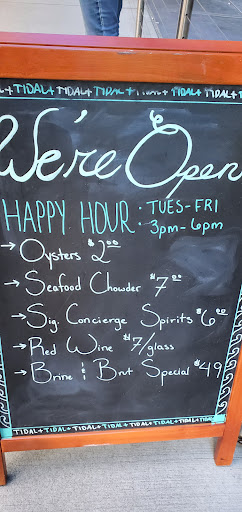 TIDAL+ TIDAL+ TIDAL+ TIDAL+ TIDAL+ TIDAL+
We're Open
HAPPY HOUR: TUES-FRI
3pm-6pm
→ Oysters $2.00
→ Seafood Chowder $7.00
→ Sig. Concierge Spirits $6.00
→ Red Wine $7/glass
→ Brine & Brut Special $49
TIDAL+ TIDAL+ TIDAL+ TIDAL+ TIDAL+ TIDAL+ TIDAL+